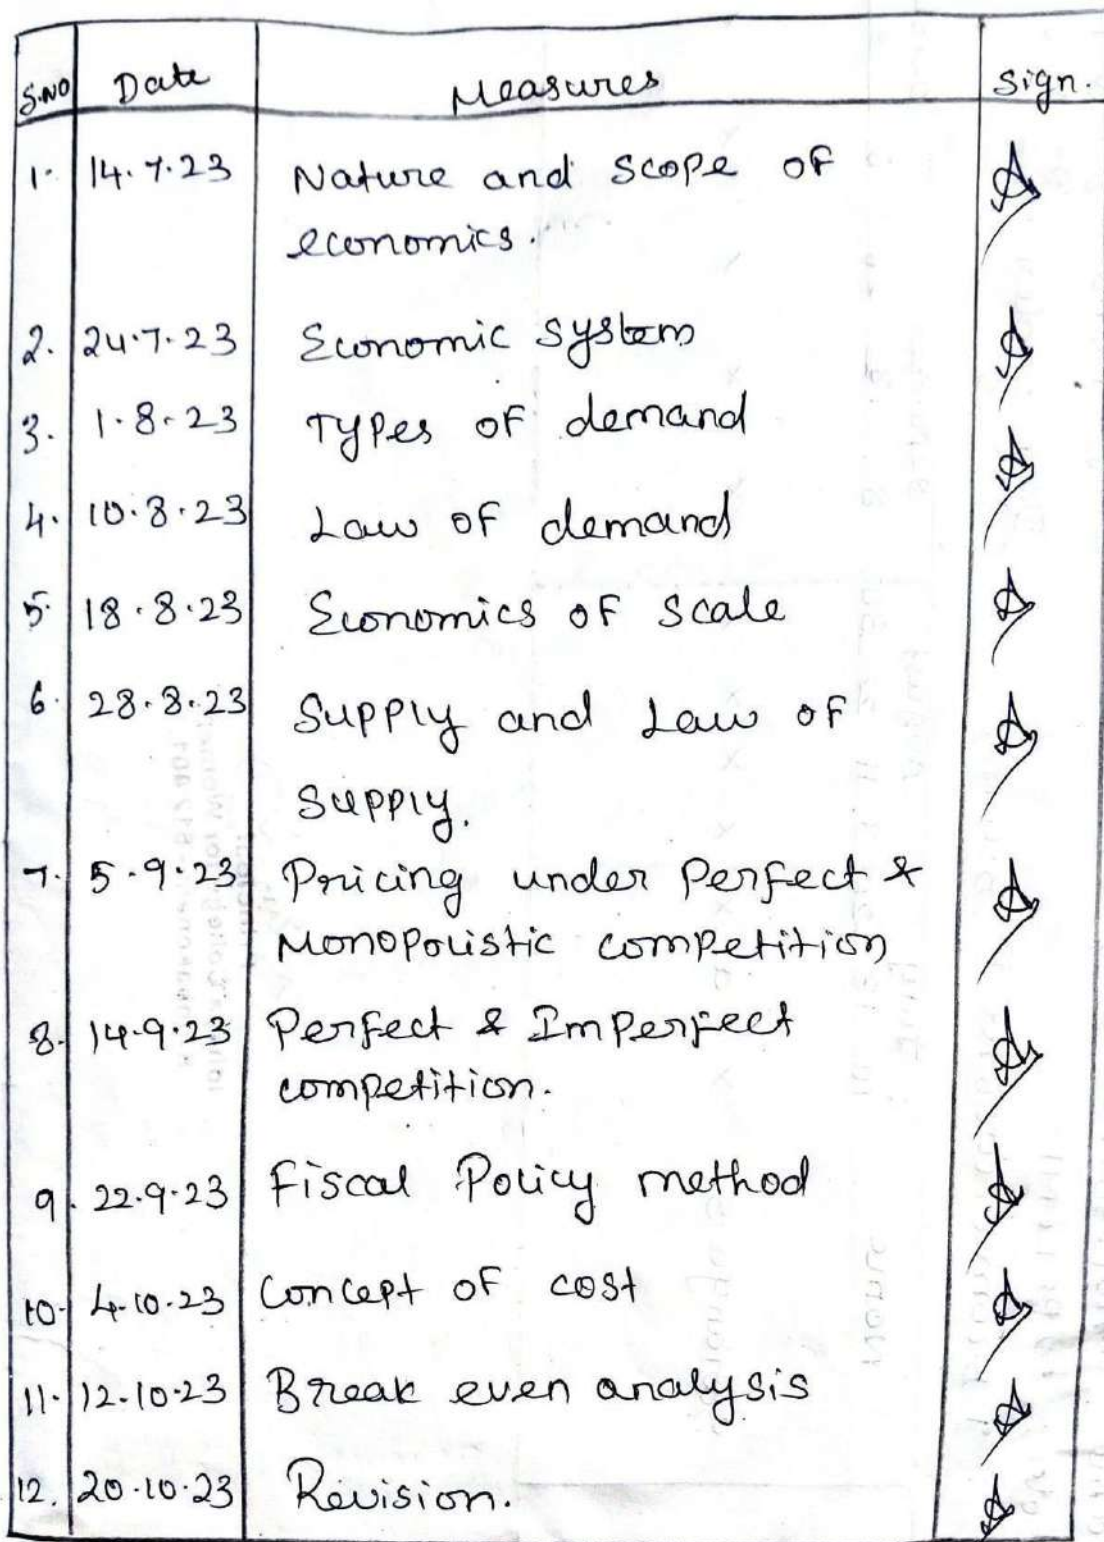 S.NO Date Measures Sign.
1. 14.7.23 Nature and scope of
economics.
2. 24.7.23 Economic system
3. 1.8.23 Types of demand
4. 10.8.23 Law of demand
5. 18.8.23 Economics of scale
6. 28.8.23 Supply and Law of
supply.
7. 5.9.23 Pricing under Perfect &
Monopolistic competition
8. 14.9.23 Perfect & Imperfect
competition.
9. 22.9.23 Fiscal Policy method
10. 4.10.23 Concept of cost
11. 12.10.23 Break even analysis
12. 20.10.23 Revision.